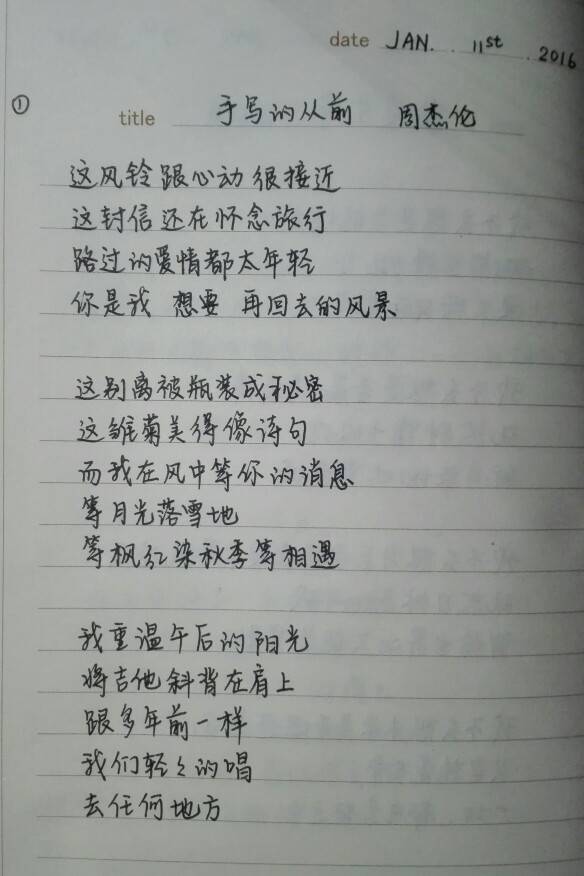 date JAN. 11st 2016
①
title 手写的从前 周杰伦
这风铃跟心动很接近
这封信还在怀念旅行
路过的爱情都太年轻
你是我 想要 再回去的风景
这别离被瓶装成秘密
这雏菊美得像诗句
而我在风中等你的消息
等月光落雪地
等枫红染秋季等相遇
我重温午后的阳光
将吉他斜背在肩上
跟多年前一样
我们轻々的唱
去任何地方